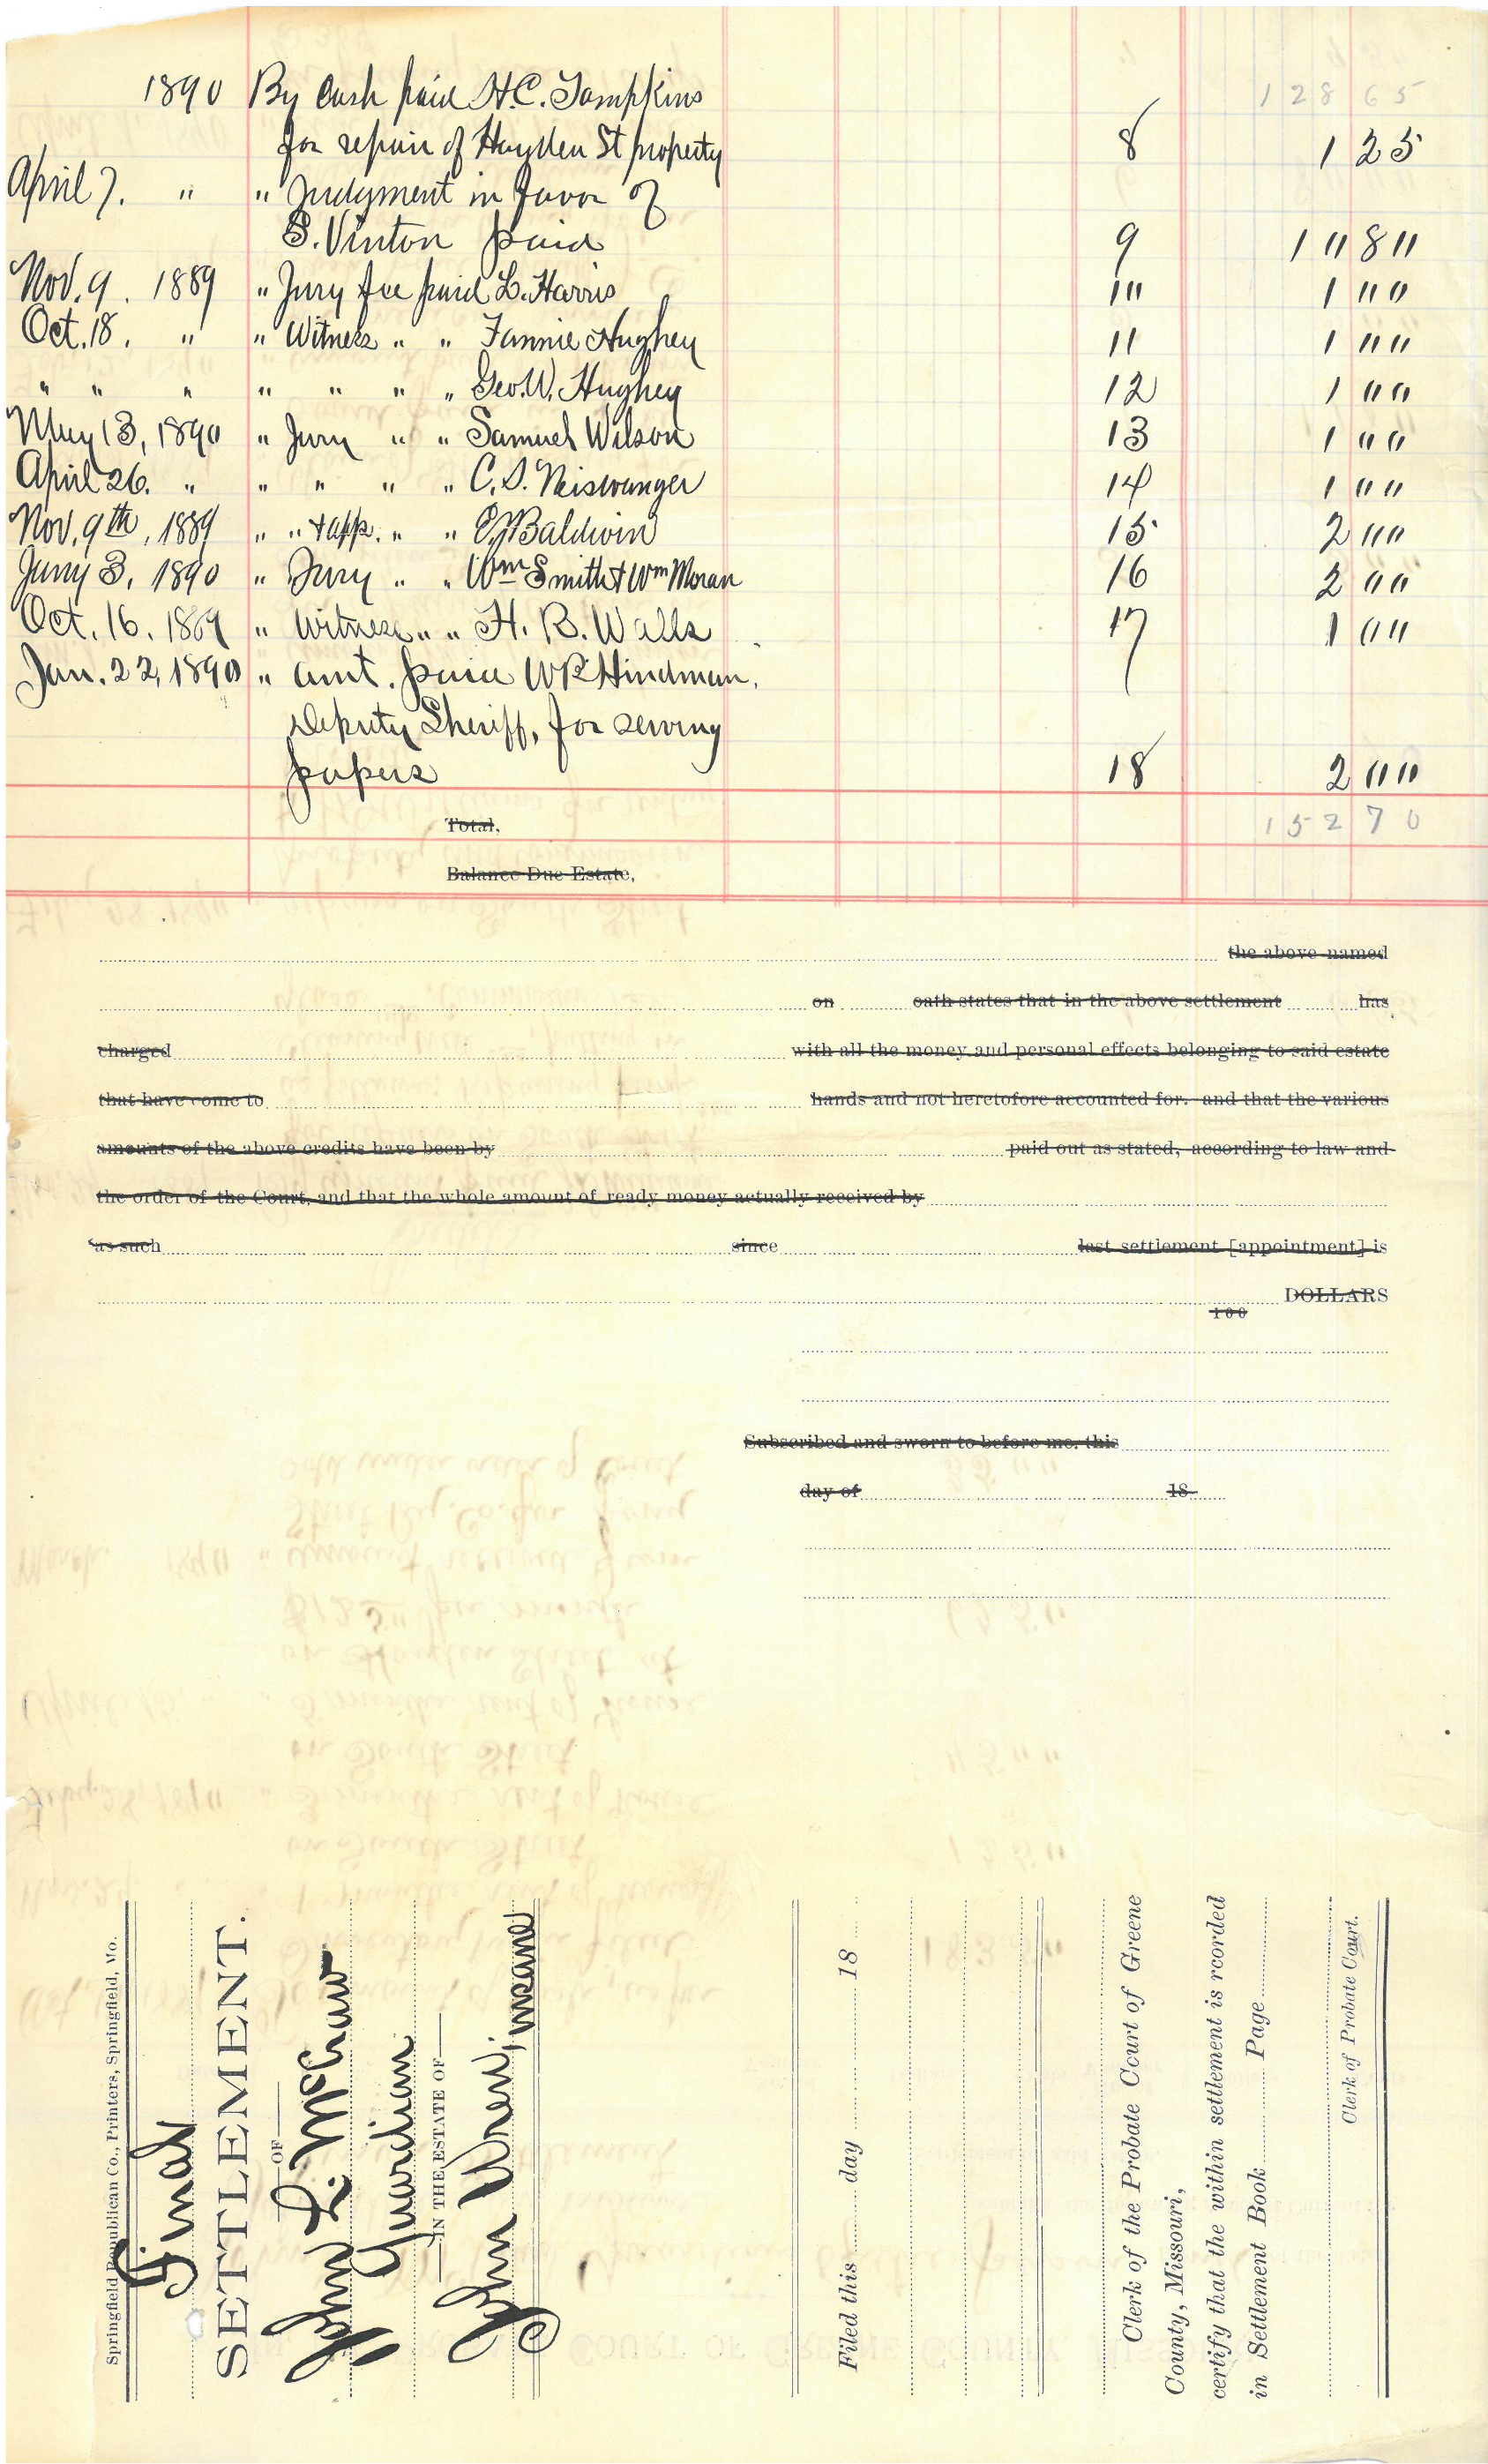 1890 By Cash paid H.C. Tompkins 128 65
for repair of Hayden St property 8 1 25
April 7. " " Judgment in favor of
S. Vinton paid 9 10 80
Nov. 9. 1889 " Jury fee paid L. Harris 10 1 00
Oct. 18. " " Witness " " Fannie Hughey 11 1 00
" " " " " " " Geo. W. Hughey 12 1 00
May 13, 1890 " Jury " " Samuel Wilson 13 1 00
April 26. " " " " " C. S. Neiswanger 14 1 00
Nov. 9th, 1889 " " & app. " " Baldwin 15 2 00
3, 1890 " Jury " " Wm Smith & Wm Moran 16 2 00
Oct. 16. 1889 " Witness " " H. B. Walls 17 1 00
Jan. 22, 1890 " amt. paid WR Hindman,
Deputy Sheriff, for serving
papers 18 2 00
Total. 152 70
Balance Due Estate,
the above named
on oath states that in the above settlement has
charged with all the money and personal effects belonging to said estate
that have come to hands and not heretofore accounted for. and that the various
amounts of the above credits have been by paid out as stated, according to law and
the order of the Court, and that the whole amount of ready money actually received by
as such since last settlement [appointment] is
DOLLARS
100
Subscribed and sworn to before me, this
day of 18
Springfield Republican Co., Printers, Springfield, Mo.
Final
SETTLEMENT.
OF
John L. McCraw
Guardian
IN THE ESTATE OF
John Wren, insane
Filed this day 18
Clerk of the Probate Court of Greene
County, Missouri,
certify that the within settlement is rcorded
in Settlement Book Page
Clerk of Probate Court.